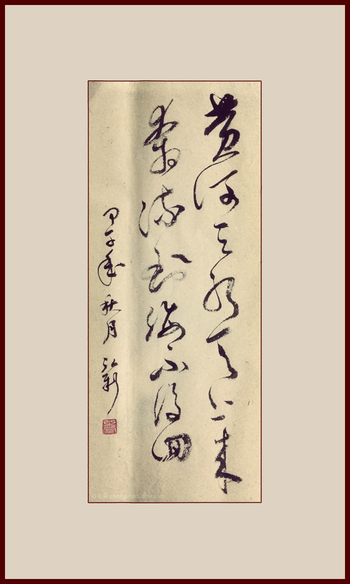 黄河之水天上来
奔流到海不復回
甲子年秋月